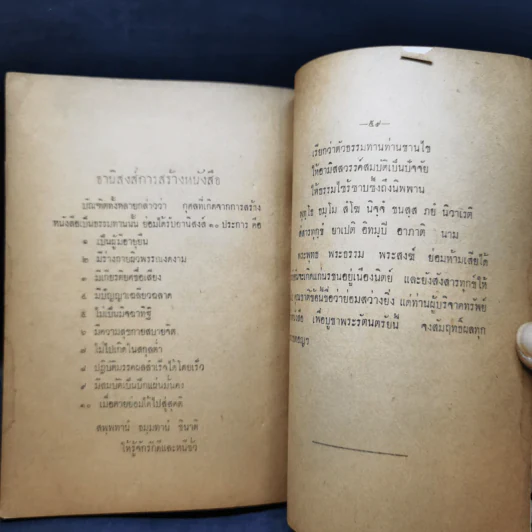 อานิสงส์การสร้างหนังสือ
บัณฑิตทั้งหลายกล่าวว่า กุศลที่เกิดจากการสร้าง
หนังสือเป็นธรรมทานนั้น ย่อมได้รับอานิสงส์ ๑๐ ประการ คือ
๑ เป็นผู้มีอายุยืน
๒ มีร่างกายผิวพรรณงดงาม
๓ มีเกียรติยศชื่อเสียง
๔ มีปัญญาเฉลียวฉลาด
๕ ไม่เป็นมิจฉาทิฐิ
๖ มีความสุขกายสบายจิต
๗ ไม่ไปเกิดในสกุลต่ำ
๘ ปฏิบัติมรรคผลสำเร็จได้โดยเร็ว
๙ มีสมบัติเป็นปึกแผ่นมั่นคง
๑๐ เมื่อตายย่อมได้ไปสู่สุคติ
สพฺพทานํ ธมฺมทานํ ชินาติ
ให้รู้จักรักดีและหนีชั่ว
—๕๙—
เรียกว่าตัวธรรมทานท่านขานไข
ให้อามิสสวรรค์สมบัติเป็นปัจจัย
ให้ธรรมไซร้ซาบซึ้งถึงนิพพาน
พุทฺโธ ธมฺโม สํโฆ นิจฺจํ ชนสฺส ภยํ นิวาเรติ
ยาเปติ อิทมฺปิ อาภาติ นาม
พระพุทธ พระธรรม พระสงฆ์ ย่อมห้ามเสียได้
เกิดแก่นรชนอยู่เนืองนิตย์ และยังสังสารทุกข์ให้
ชาติชื่อนี้ชื่อว่าย่อมสว่างยิ่ง แต่ท่านผู้บริจาคทรัพย์
เพื่อบูชาพระรัตนตรัยนี้ จงสัมฤทธิ์ผลทุก